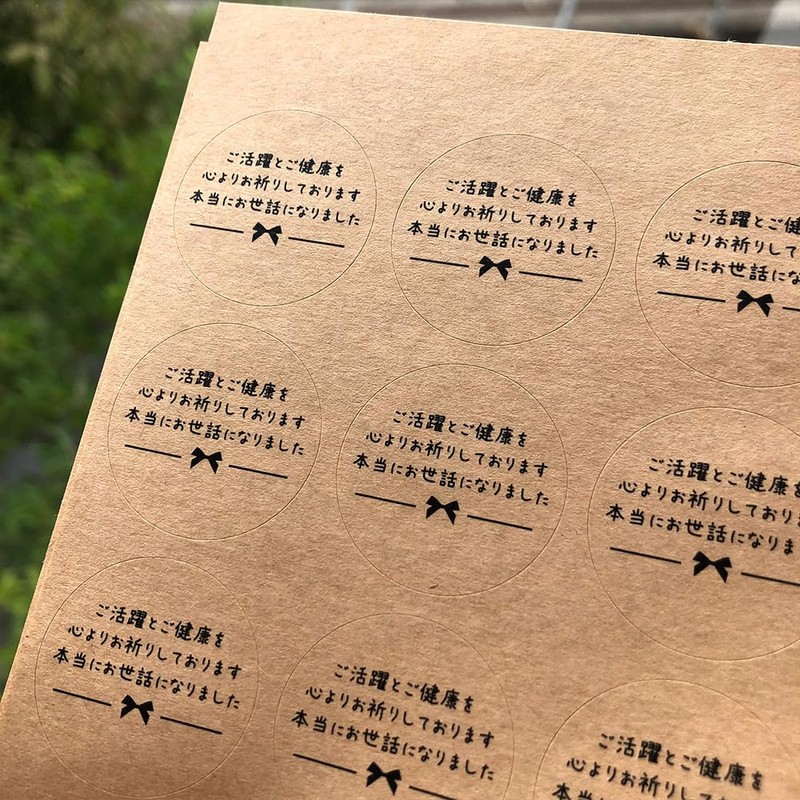 ご活躍とご健康を
心よりお祈りしております
本当にお世話になりました
ご活躍とご健康を
心よりお祈りしております
本当にお世話になりました
ご活躍とご健
心よりお祈りして
本当にお世話にな
ご活躍とご健康を
心よりお祈りしております
本当にお世話になりました
ご活躍とご健康を
心よりお祈りしております
本当にお世話になりました
ご活躍とご健康
心よりお祈りしており
本当にお世話になりま
ご活躍とご健康を
心よりお祈りしております
本当にお世話になりました
ご活躍とご健康を
心よりお祈りしております
本当にお世話になりました
ご活躍とご健康を
心よりお祈りしており
本当にお世話